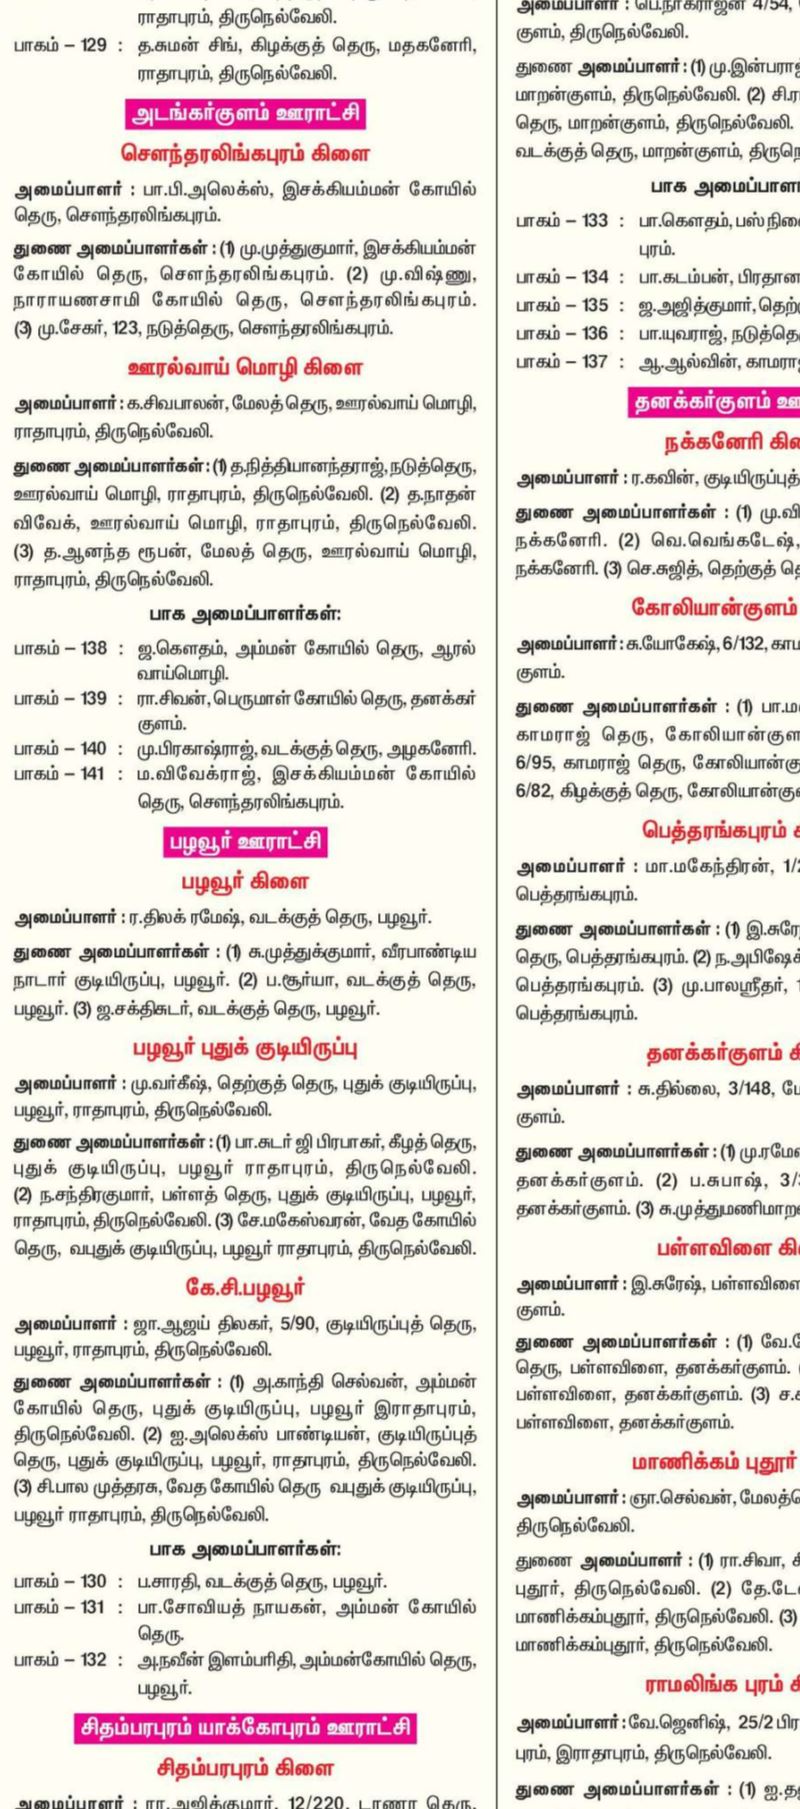 ராதாபுரம், திருநெல்வேலி.
பாகம் – 129 : த.சுமன் சிங், கிழக்குத் தெரு, மதகனேரி,
ராதாபுரம், திருநெல்வேலி.
அடங்கார்குளம் ஊராட்சி
சௌந்தரலிங்கபுரம் கிளை
அமைப்பாளர் : பா.பி.அலெக்ஸ், இசக்கியம்மன் கோயில்
தெரு, சௌந்தரலிங்கபுரம்.
துணை அமைப்பாளர்கள் : (1) மு.முத்துகுமார், இசக்கியம்மன்
கோயில் தெரு, சௌந்தரலிங்கபுரம். (2) மு.விஷ்ணு,
நாராயணசாமி கோயில் தெரு, சௌந்தரலிங்கபுரம்.
(3) மு.சேகர், 123, நடுத்தெரு, சௌந்தரலிங்கபுரம்.
ஊரல்வாய் மொழி கிளை
அமைப்பாளர் : க.சிவபாலன், மேலத் தெரு, ஊரல்வாய் மொழி,
ராதாபுரம், திருநெல்வேலி.
துணை அமைப்பாளர்கள் : (1) த.நித்தியானந்தராஜ், நடுத்தெரு,
ஊரல்வாய் மொழி, ராதாபுரம், திருநெல்வேலி. (2) த.நாதன்
விவேக், ஊரல்வாய் மொழி, ராதாபுரம், திருநெல்வேலி.
(3) த.ஆனந்த ரூபன், மேலத் தெரு, ஊரல்வாய் மொழி,
ராதாபுரம், திருநெல்வேலி.
பாக அமைப்பாளர்கள்:
பாகம் – 138 : ஜ.கௌதம், அம்மன் கோயில் தெரு, ஆரல்
வாய்மொழி.
பாகம் – 139 : ரா.சிவன், பெருமாள் கோயில் தெரு, தனக்கர்
குளம்.
பாகம் – 140 : மு.பிரகாஷ்ராஜ், வடக்குத் தெரு, அழகனேரி.
பாகம் – 141 : ம.விவேக்ராஜ், இசக்கியம்மன் கோயில்
தெரு, சௌந்தரலிங்கபுரம்.
பழவூர் ஊராட்சி
பழவூர் கிளை
அமைப்பாளர் : ர.திலக் ரமேஷ், வடக்குத் தெரு, பழவூர்.
துணை அமைப்பாளர்கள் : (1) சு.முத்துக்குமார், வீரபாண்டிய
நாடார் குடியிருப்பு, பழவூர். (2) ப.சூர்யா, வடக்குத் தெரு,
பழவூர். (3) ஜ.சக்திசுடர், வடக்குத் தெரு, பழவூர்.
பழவூர் புதுக் குடியிருப்பு
அமைப்பாளர் : மு.வர்கீஷ், தெற்குத் தெரு, புதுக் குடியிருப்பு,
பழவூர், ராதாபுரம், திருநெல்வேலி.
துணை அமைப்பாளர்கள் : (1) பா.சுடர் ஜி பிரபாகர், கீழத் தெரு,
புதுக் குடியிருப்பு, பழவூர் ராதாபுரம், திருநெல்வேலி.
(2) ந.சந்திரகுமார், பள்ளத் தெரு, புதுக் குடியிருப்பு, பழவூர்,
ராதாபுரம், திருநெல்வேலி. (3) சே.மகேஸ்வரன், வேத கோயில்
தெரு, வபுதுக் குடியிருப்பு, பழவூர் ராதாபுரம், திருநெல்வேலி.
கே.சி.பழவூர்
அமைப்பாளர் : ஜா.ஆஜய் திலகர், 5/90, குடியிருப்புத் தெரு,
பழவூர், ராதாபுரம், திருநெல்வேலி.
துணை அமைப்பாளர்கள் : (1) அ.காந்தி செல்வன், அம்மன்
கோயில் தெரு, புதுக் குடியிருப்பு, பழவூர் இராதாபுரம்,
திருநெல்வேலி. (2) ஐ.அலெக்ஸ் பாண்டியன், குடியிருப்புத்
தெரு, புதுக் குடியிருப்பு, பழவூர், ராதாபுரம், திருநெல்வேலி.
(3) சி.பால முத்தரசு, வேத கோயில் தெரு வபுதுக் குடியிருப்பு,
பழவூர் ராதாபுரம், திருநெல்வேலி.
பாக அமைப்பாளர்கள்:
பாகம் – 130 : ப.சாரதி, வடக்குத் தெரு, பழவூர்.
பாகம் – 131 : பா.சோவியத் நாயகன், அம்மன் கோயில்
தெரு.
பாகம் – 132 : அ.நவீன் இளம்பரிதி, அம்மன்கோயில் தெரு,
பழவூர்.
சிதம்பரபுரம் யாக்கோபுரம் ஊராட்சி
சிதம்பரபுரம் கிளை
அமைப்பாளர் : ரா.அஜிக்குமார், 12/220, டாணா தெரு,
அமைப்பாளர் : பெ.நாகராஜன் 4/54,
குளம், திருநெல்வேலி.
துணை அமைப்பாளர் : (1) மு.இன்பராஜ்
மாறன்குளம், திருநெல்வேலி. (2) சி.ரா
தெரு, மாறன்குளம், திருநெல்வேலி.
வடக்குத் தெரு, மாறன்குளம், திருநெ
பாக அமைப்பாள
பாகம் – 133 : பா.கௌதம், பஸ் நிலை
புரம்.
பாகம் – 134 : பா.கடம்பன், பிரதான
பாகம் – 135 : ஜ.அஜித்குமார், தெற்
பாகம் – 136 : பா.யுவராஜ், நடுத்தெ
பாகம் – 137 : ஆ.ஆல்வின், காமரா
தனக்கர்குளம் ஊ
நக்கனேரி கி
அமைப்பாளர் : ர.கவின், குடியிருப்புத்
துணை அமைப்பாளர்கள் : (1) மு.வி
நக்கனேரி. (2) வெ.வெங்கடேஷ்,
நக்கனேரி. (3) செ.சுஜித், தெற்குத் தெ
கோலியான்குளம்
அமைப்பாளர் : சு.யோகேஷ், 6/132, காம
குளம்.
துணை அமைப்பாளர்கள் : (1) பா.ம
காமராஜ் தெரு, கோலியான்குள
6/95, காமராஜ் தெரு, கோலியான்கு
6/82, கிழக்குத் தெரு, கோலியான்கு
பெத்தரங்கபுரம்
அமைப்பாளர் : மா.மகேந்திரன், 1/2
பெத்தரங்கபுரம்.
துணை அமைப்பாளர்கள் : (1) இ.சுரே
தெரு, பெத்தரங்கபுரம். (2) ந.அபிஷேக்
பெத்தரங்கபுரம். (3) மு.பாலஸ்ரீதர், 1
பெத்தரங்கபுரம்.
தனக்கர்குளம் கி
அமைப்பாளர் : சு.தில்லை, 3/148, மே
குளம்.
துணை அமைப்பாளர்கள் : (1) மு.ரமே
தனக்கர்குளம். (2) ப.சுபாஷ், 3/3
தனக்கர்குளம். (3) சு.முத்துமணிமாற
பள்ளவிளை கி
அமைப்பாளர் : இ.சுரேஷ், பள்ளவிளை
குளம்.
துணை அமைப்பாளர்கள் : (1) வே.
தெரு, பள்ளவிளை, தனக்கர்குளம்.
பள்ளவிளை, தனக்கர்குளம். (3) ச.
பள்ளவிளை, தனக்கர்குளம்.
மாணிக்கம் புதூர்
அமைப்பாளர் : ஞா.செல்வன், மேலத்தெ
திருநெல்வேலி.
துணை அமைப்பாளர் : (1) ரா.சிவா,
புதூர், திருநெல்வேலி. (2) தே.டே
மாணிக்கம்புதூர், திருநெல்வேலி. (3)
மாணிக்கம்புதூர், திருநெல்வேலி.
ராமலிங்க புரம் கி
அமைப்பாளர் : வே.ஜெனிஷ், 25/2 பிர
புரம், இராதாபுரம், திருநெல்வேலி.
துணை அமைப்பாளர்கள் : (1) ஐ.த